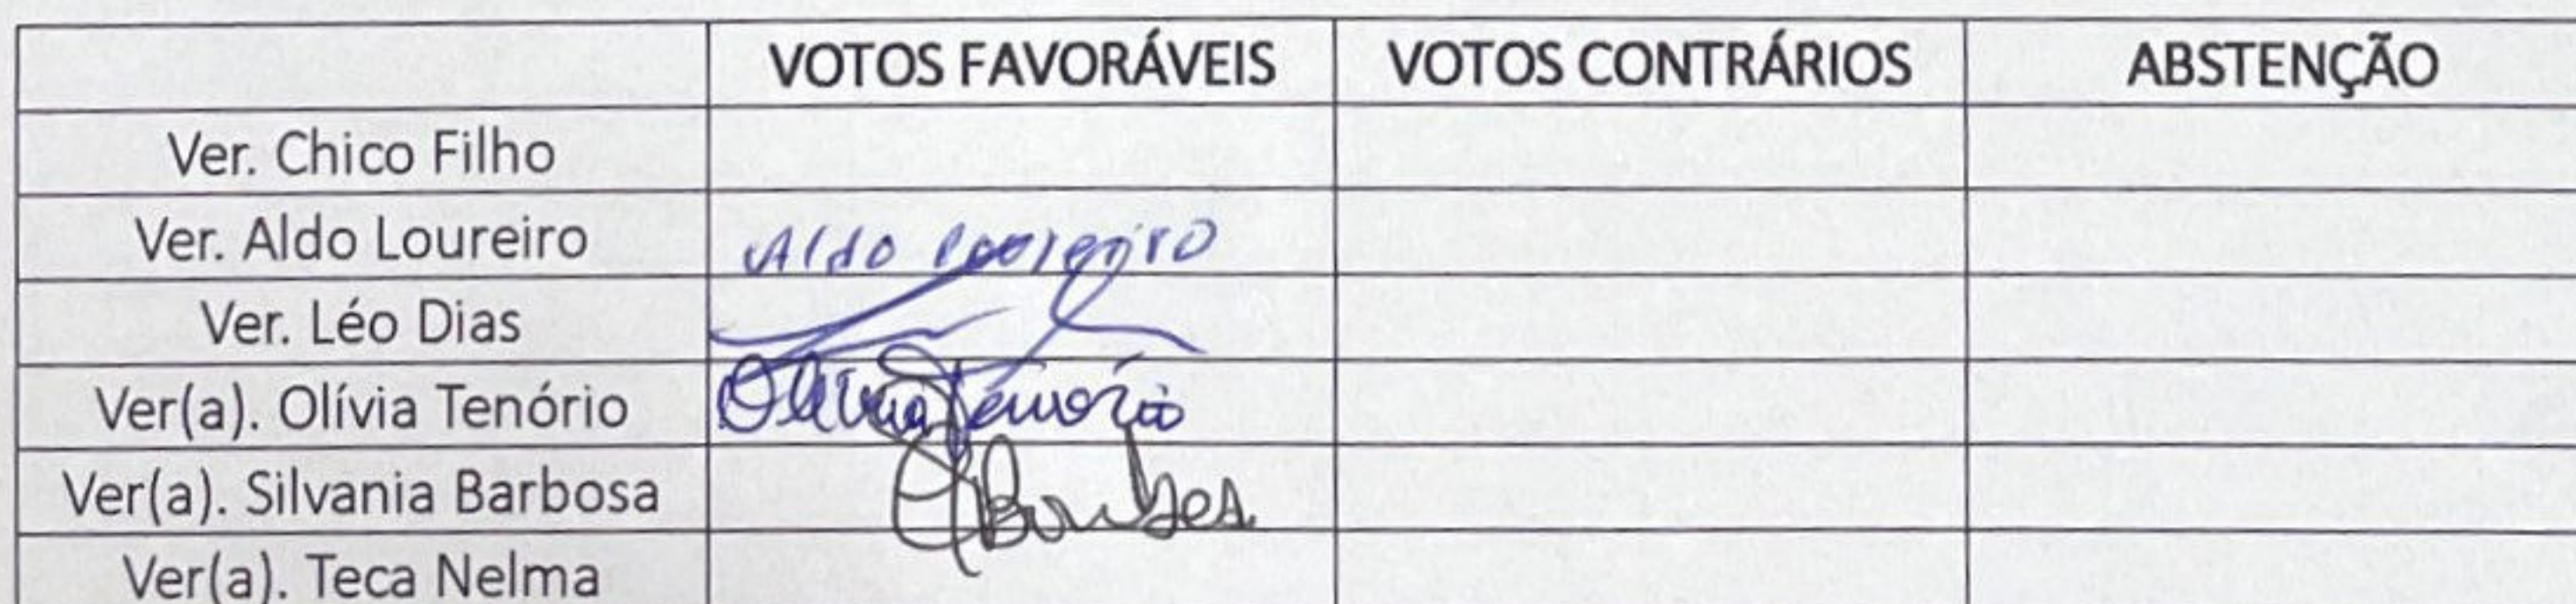 VOTOS FAVORÁVEIS VOTOS CONTRÁRIOS ABSTENÇÃO
Ver. Chico Filho
Ver. Aldo Loureiro Aldo Loureiro
Ver. Léo Dias
Ver(a). Olívia Tenório Olívia Tenório
Ver(a). Silvania Barbosa
Ver(a). Teca Nelma